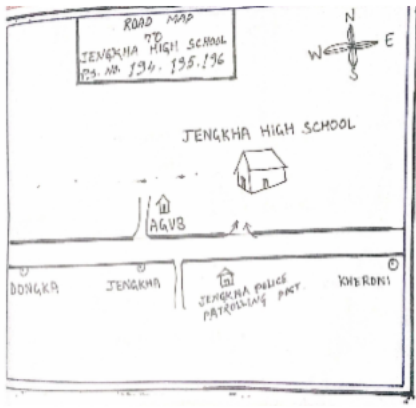 ROAD MAP
TO
JENGKHA HIGH SCHOOL
P.S. NO. 194. 195. 196
N
W E
S
JENGKHA HIGH SCHOOL
AGVB
DONGKA JENGKHA KHERONI
JENGKHA POLICE
PATROLLING POST.